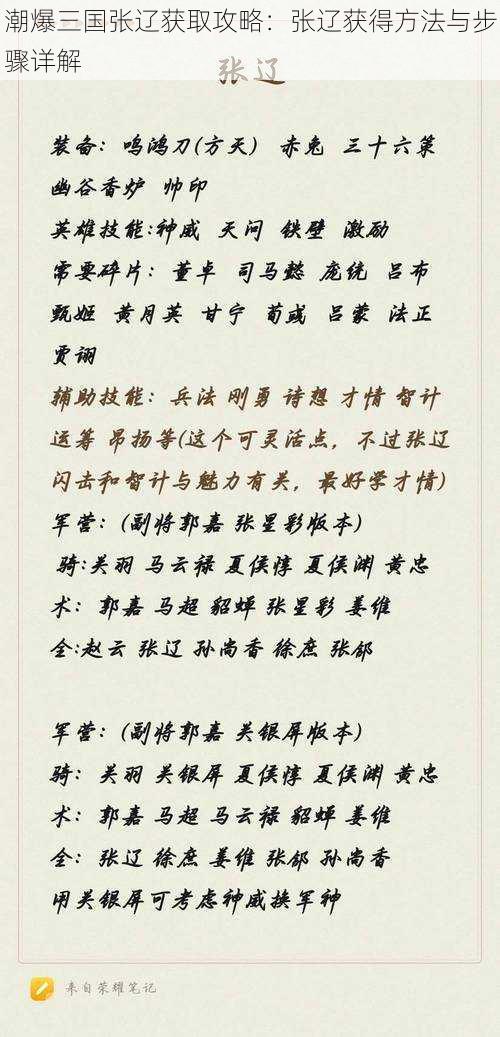 潮爆三国张辽获取攻略：张辽获得方法与步
骤详解
张辽
装备：鸣鸿刀(方天) 赤兔 三十六策
幽谷香炉 帅印
英雄技能:神威 天问 铁壁 激励
需要碎片：董卓 司马懿 庞统 吕布
甄姬 黄月英 甘宁 荀彧 吕蒙 法正
贾诩
辅助技能：兵法 刚勇 诗想 才情 智计
运筹 昂扬等(这个可灵活点，不过张辽
闪击和智计与魅力有关，最好学才情)
军营：(副将郭嘉 张星彩版本)
骑:关羽 马云禄 夏侯惇 夏侯渊 黄忠
术：郭嘉 马超 貂蝉 张星彩 姜维
全:赵云 张辽 孙尚香 徐庶 张郃
军营：(副将郭嘉 关银屏版本)
骑：关羽 关银屏 夏侯惇 夏侯渊 黄忠
术：郭嘉 马超 马云禄 貂蝉 姜维
全：张辽 徐庶 姜维 张郃 孙尚香
用关银屏可考虑神威换军神
来自荣耀笔记